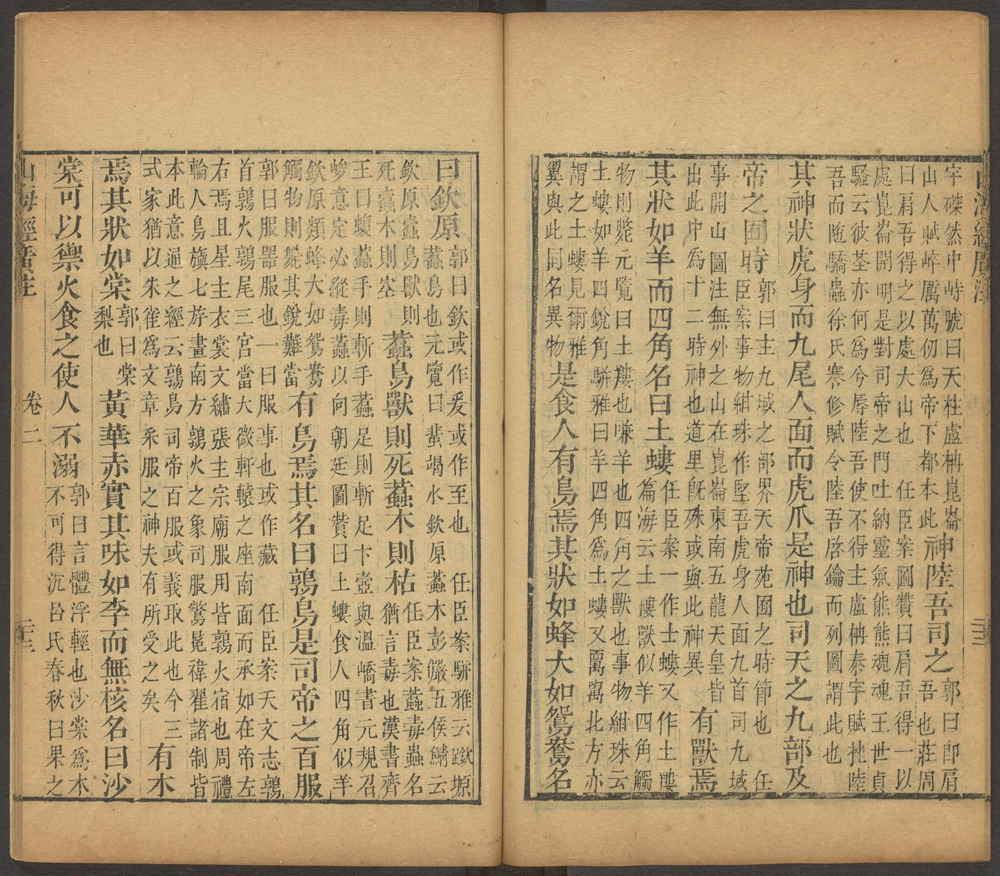 宇磔然中峙號曰天柱盧柟崑崙山人賦崪厲萬仞爲帝下都本此神陸吾司之郭曰卽肩吾也莊周
曰肩吾得之以處大山也 任臣案圖贊曰肩吾得一以處崑崙開明是對司帝之門吐納靈氣熊熊魂魂王世貞
騷云彼荃亦何爲兮辱陸吾使不得主盧柟泰宇賦挫陸吾而驕蟲徐氏謇修賦令陸吾啓鑰而列圖謂此也
其神狀虎身而九尾人面而虎爪是神也司天之九部及
帝之囿時郭曰主九域之部界天帝苑囿之時節也 任臣案事物紺珠作堅吾虎身人面九首司九域
事開山圖注無外之山在崑崙東南五龍天皇皆出此中爲十二時神也道里旣殊或與此神異有獸焉
其狀如羊而四角名曰土螻任臣案一作士螻又作土篇海云土獸似羊四角觸
物則斃元覽曰土也羊也四角之獸也事物紺珠云土螻如羊四銳角駢雅曰羊四角爲土螻又北方亦
謂之土螻見爾雅翼與此同名異物是食人有鳥焉其狀如蜂大如鴛鴦名
曰欽原郭曰欽或作爰或作至也 任臣案駢雅云蠚鳥也元覽曰蜚竭水欽原蠚木彭儼五侯鯖云
欽原蠚鳥獸則死蠚木則枯蠚鳥獸則死蠚木則枯任臣案蠚毒蟲名猶言毒也漢書齊
王曰蝮蠚手則斬手蠚足則斬足卞壺與溫嶠書元規召峻意定必縱毒蠚以向朝廷圖贊曰土螻食人四角似羊
欽原類蜂大如鴛鴦觸物則斃其銳難當有鳥焉其名曰鶉鳥是司帝之百服
郭曰服器服也一曰服事也或作藏 任臣案天文志鶉首鶉火鶉尾三宮當大微軒轅之座南面而承如在帝左
右焉且星主衣裳文繡張主宗廟服用皆鶉火宿也周禮輪人鳥旟七斿畫南方鶉火之象司服鷩冕褘翟諸制皆
本此意通之經云鶉鳥司帝百服或義取此也今三式家猶以朱雀爲文章采服之神夫有所受之矣有木
焉其狀如棠郭曰棠梨也黃華赤實其味如李而無核名曰沙
棠可以禦火食之使人不溺郭曰言體浮輕也沙棠爲木不可得沉呂氏春秋曰果之
山海經廣注 卷二 二十三